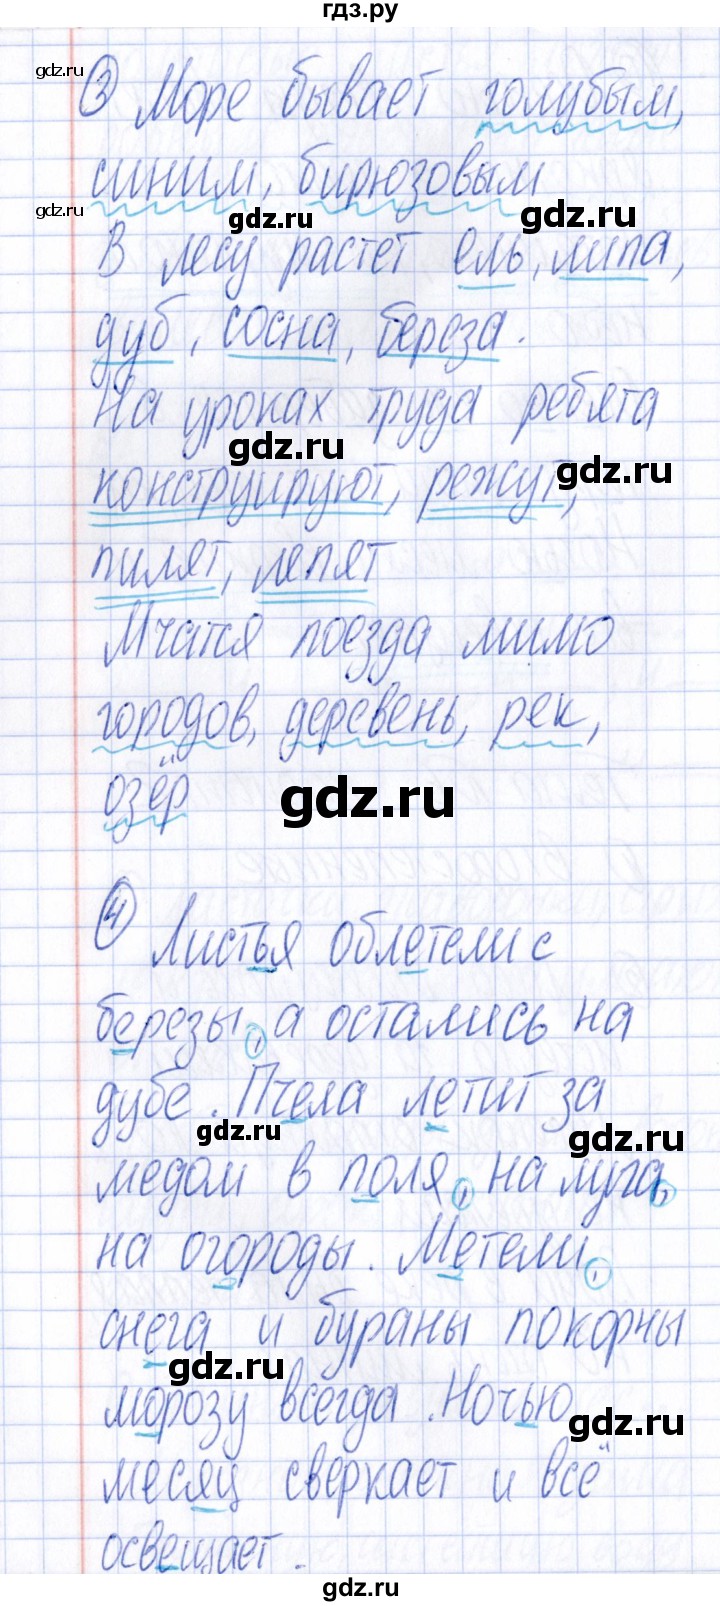 гдз.ру
gdz.ru
3 Море бывает голубым,
синим, бирюзовым
gdz.ru
gdz.ru
gdz.ru
В лесу растет ель, липа,
дуб, сосна, береза.
На уроках труда ребята
gdz.ru
gdz.ru
конструируют, режут,
пилят, лепят
Мчатся поезда мимо
городов, деревень, рек,
озёр
gdz.ru
4 Листья облетели с
березы, а остались на
дубе. Пчела летит за
gdz.ru
gdz.ru
медом в поля, на луга,
на огороды. Метели,
снега и бураны покорны
gdz.ru
морозу всегда. Ночью
gdz.ru
месяц сверкает и всё
освещает.
gdz.ru